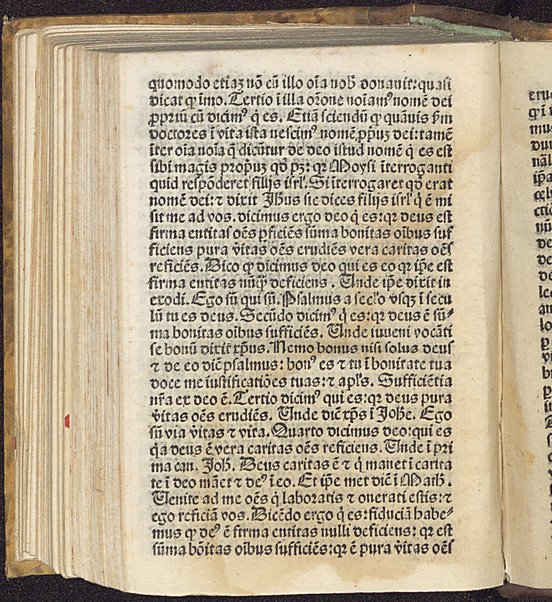 quomodo etiaʒ nō cū illo oīa nob̄ donauit: quasi
dicat ꝙ imo. Tertio ī illa orōne noīamꝰ nomē dei
ꝓpriū cū dicimꝰ q̇ es. Etiā sciendū ꝙ quāuis ẜm
doctores ī vita ista nescimꝰ nomē ꝓpꝛiū dei: tamē
īter oīa noīa q̄ dicūtur de deo istud nomē q̇ es est
sibi magis propꝛiuʒ qḋ pʒ: qꝛ Moysi īterroganti
quid respōderet filijs isrl̓. Si īterrogaret qḋ erat
nomē dei: ⁊ dixit Jhūs sic dices filijs isrl̓ q̇ ē mi
sit me ad vos. dicimus ergo deo q̇ es: qꝛ deus est
firma entitas oēs ꝑficiēs sūma bonitas oībus suf
ficiens pura v̄itas oēs erudiēs vera caritas oēs
reficiēs. Dico ꝙ dicimus deo qui es eo qꝛ ip̄e est
firma entitas nūꝙ deficiens. Unde ip̄e dixit in
exodi. Ego sū qui sū. Psalmus a sec̄lo vsqʒ ī secu
lū tu es deus. Secūdo dicimꝰ q̇ es: qꝛ deus ē sū⸗
ma bonitas oībus sufficiēs. Unde iuueni vocāti
se bonū dixit xp̄us. Nemo bonus nisi solus deus
⁊ de eo diē psalmus: bonꝰ es ⁊ tu ī bonitate tua
doce me iustificatiōes tuas: ⁊ apl̓s. Sufficiētia
nr̄a ex deo ē. Tertio dicimꝰ qui es: qꝛ deus pura
v̄itas oēs erudiēs. Unde diē xp̄s ī Joh̄e. Ego
sū via v̄itas ⁊ vita. Quarto dicimus deo: qui es
q̇a deus ē vera caritas oēs reficiens. Unde ī pri
ma can. Joh̄. Deus caritas ē ⁊ q̇ manet ī carita
te ī deo māet ⁊ deꝰ ī eo. Et ip̄e met diē ī Math̄.
Uenite ad me oēs q̇ laboratis ⁊ onerati estis: ⁊
ego reficiā vos. Dicēdo ergo q̇ es: fiduciā habe⸗
mus ꝙ deꝰ ē firma entitas nulli deficiens: qꝛ est
sūma bōitas oībus sufficiēs: qꝛ ē pura v̄itas oēs